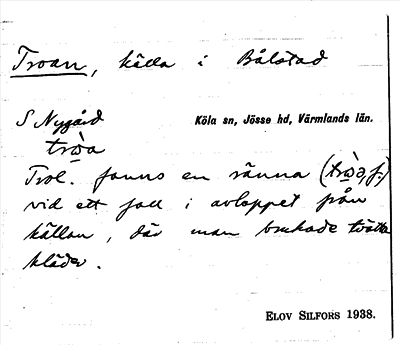 Troan, källa i Bålstad
S Nygård
Köla sn, Jösse hd, Värmlands län.
tròa
Trol. fanns en ränna (tròa, f.)
vid ett fall i avloppet från
källan, där man brukade tvätta
kläder.
ELOV SILFORS 1938.